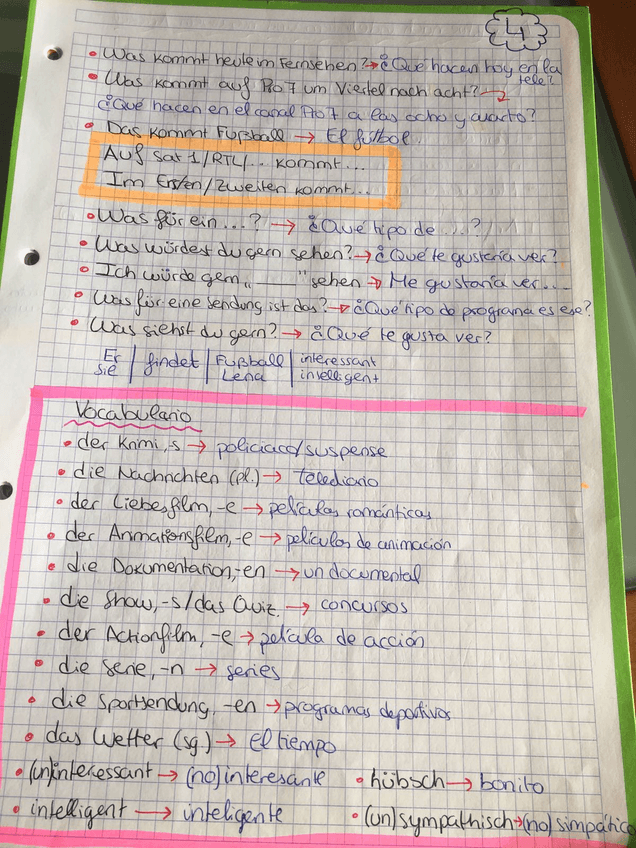 4
• Was kommt heute im Fernsehen? → ¿Qué hacen hoy en la tele?
• Was kommt auf Pro 7 um Viertel nach acht? →
¿Qué hacen en el canal Pro 7 a las ocho y cuarto?
• Das kommt Fußball → El fútbol.
Auf Sat 1/RTL/... kommt...
Im Ersten/Zweiten kommt...
• Was für ein ...? → ¿Qué tipo de ...?
• Was würdest du gern sehen? → ¿Qué te gustaría ver?
• Ich würde gern „_____" sehen → Me gustaría ver...
• Was für eine Sendung ist das? → ¿Qué tipo de programa es ese?
• Was siehst du gern? → ¿Qué te gusta ver?
Er | findet | Fußball | interessant
Sie | Lena | intelligent
Vocabulario
• der Krimi, s → policiaco/suspense
• die Nachrichten (pl.) → telediario
• der Liebesfilm, -e → películas románticas
• der Anmationsfilm, -e → películas de animación
• die Dokumentation, -en → un documental
• die Show, -s/das Quiz. → concursos
• der Actionfilm, -e → película de acción
• die Serie, -n → series
• die Sportsendung, -en → programas deportivos
• das Wetter (sg.) → El tiempo
• (un)interessant → (no) interesante • hübsch → bonito
• intelligent → inteligente • (un)sympathisch → (no) simpático